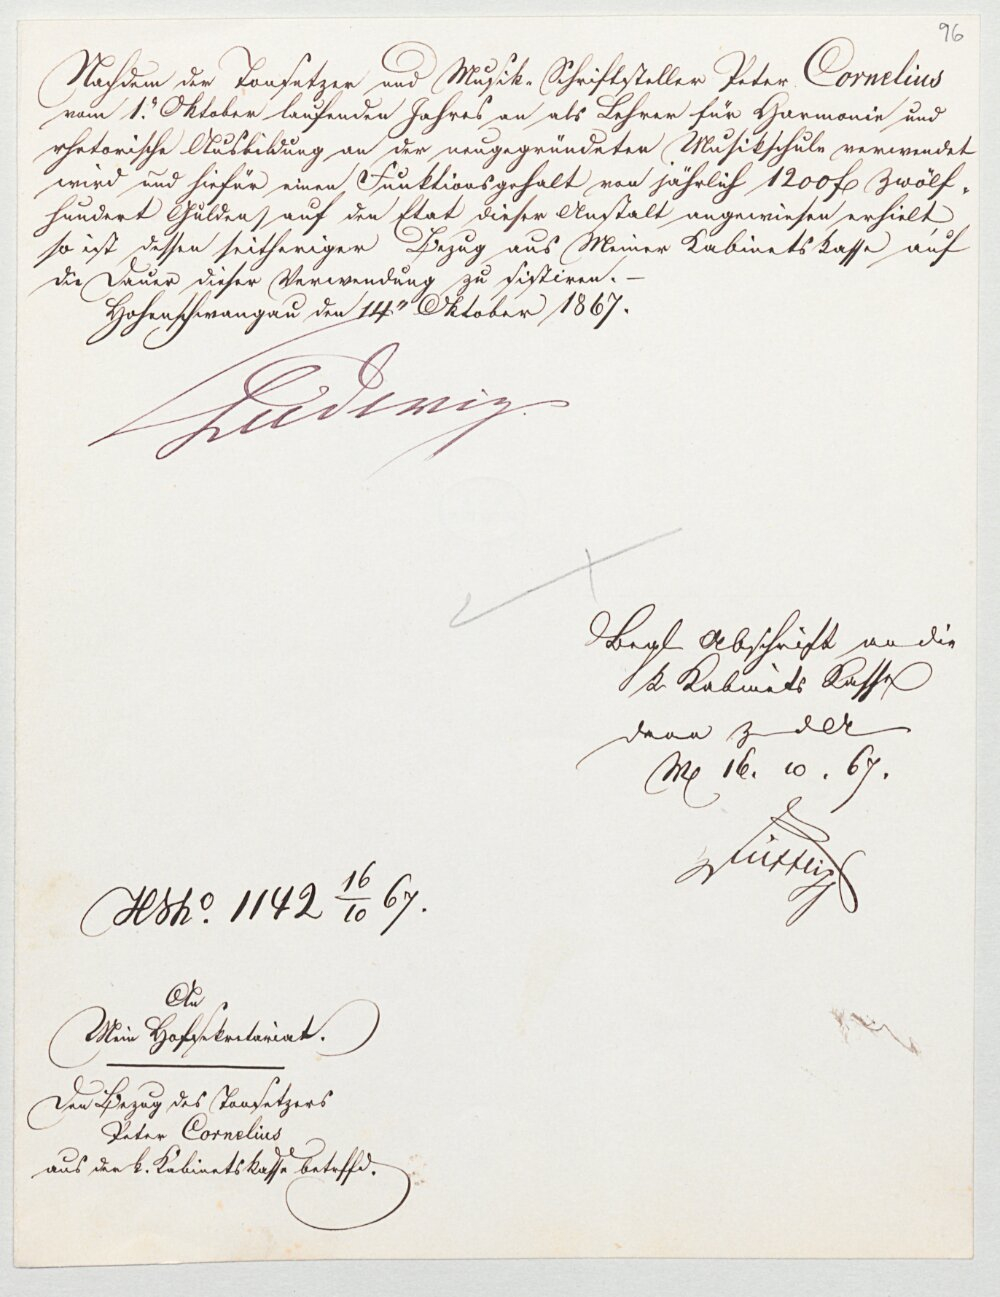 96
Nachdem der Tonsetzer und Musik-Schriftsteller Peter Cornelius
vom 1n Oktober laufenden Jahres an als Lehrer für Harmonie und
rhetorische Ausbildung an der neugegründeten Musikschule verwendet
wird und hiefür einen Funktionsgehalt von jährlich 1200 f (zwölf-
hundert Gulden) auf den Etat dieser Anstalt angewiesen erhielt,
so ist dessen seitheriger Bezug aus Meiner Kabinetskasse auf
die Dauer dieser Verwendung zu sistiren. –
Hohenschwangau den 14n Oktober 1867.
Ludwig
Begl Abschrift an die
k Kabinets Kasse
dann z d A
M 16. 10. 67.
1142 16/10 67.
An
Mein Hofsekretariat.
Den Bezug des Tonsetzers
Peter Cornelius
aus der k. Kabinetskasse betrffd.